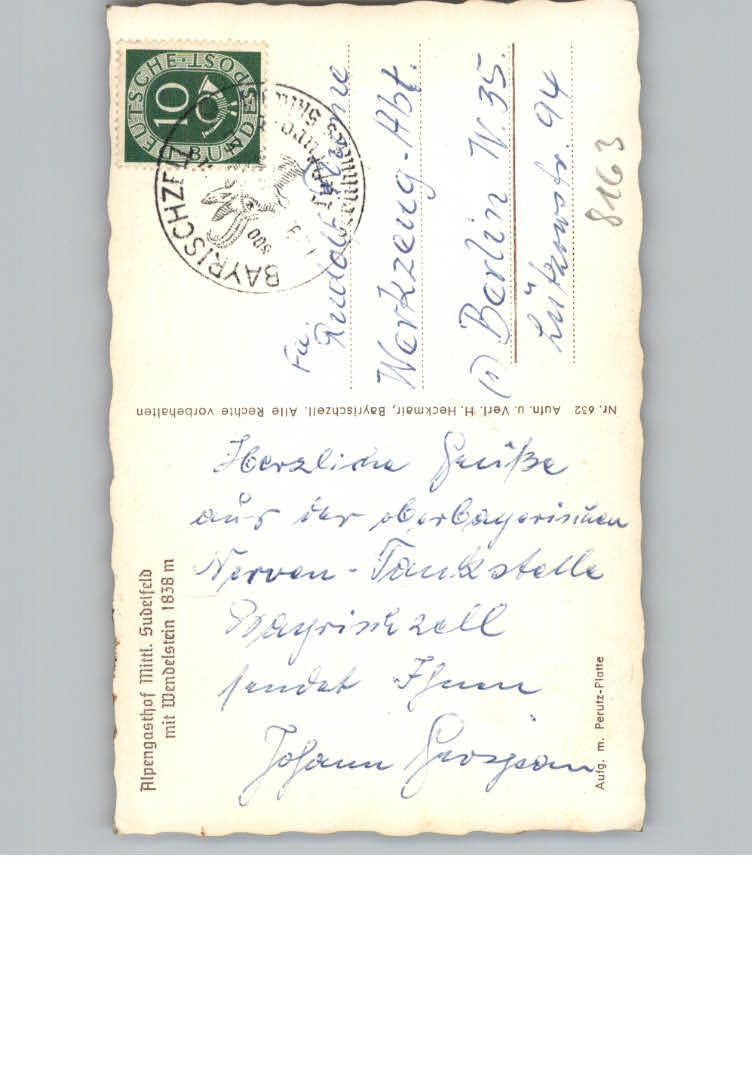 Alpengasthof Mittl. Sudelfeld
mit Wendelstein 1838 m
Herzliche Grüße
aus der oberbayerischen
Nerven-Tankstelle
Bayrischzell
sendet Ihnen
Johann Grosjean
Aufg. m. Perutz-Platte
Nr. 632 Aufn. u. Verl. H. Heckmair, Bayrischzell. Alle Rechte vorbehalten
DEUTSCHE·BUNDESPOST
10
BAYRISCHZELL
800
Fa.
Rudolf
Werkzeug-Abt.
(1) Berlin W. 35.
Lützowstr. 94
8163